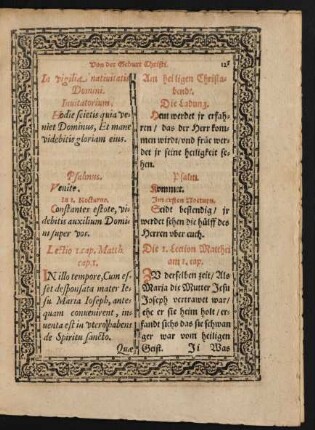 Von der Geburt Christi. 125
In vigilia natiuitatis
Domini.
Inuitatorium.
Hodie scietis quia ve-
niet Dominus, Et mane
videbitis gloriam eius.
Psalmus.
Venite.
In 1. Nocturno.
Constantes estote, vi-
debitis auxilium Domi-
ni super vos.
Lectio 1. cap. Matth.
cap. 1.
IN illo tempore, Cum es-
set desponsata mater Ie-
su Maria Ioseph, ante-
quam conuenirent, in-
uenta est in vtero habens
de Spiritu sancto.
Quæ
Am heiligen Christa-
bendt.
Die Ladung.
Heut werdet jr erfah-
ren / das der Herr kom-
men wirdt / vnd früe wer-
det jr seine herligkeit se-
hen.
Psalm.
Kommet.
Im ersten Nocturn.
Seidt bestendig / jr
werdet sehen die hülff des
Herren vber euch.
Die 1. Lection Matthei
am 1. cap.
ZV derselben zeit / Als
Maria die Mutter Jesu
Joseph vertrawet war /
ehe er sie heim holt / er-
fandt sichs das sie schwan
ger war vom heiligen
Geist. Ii Was